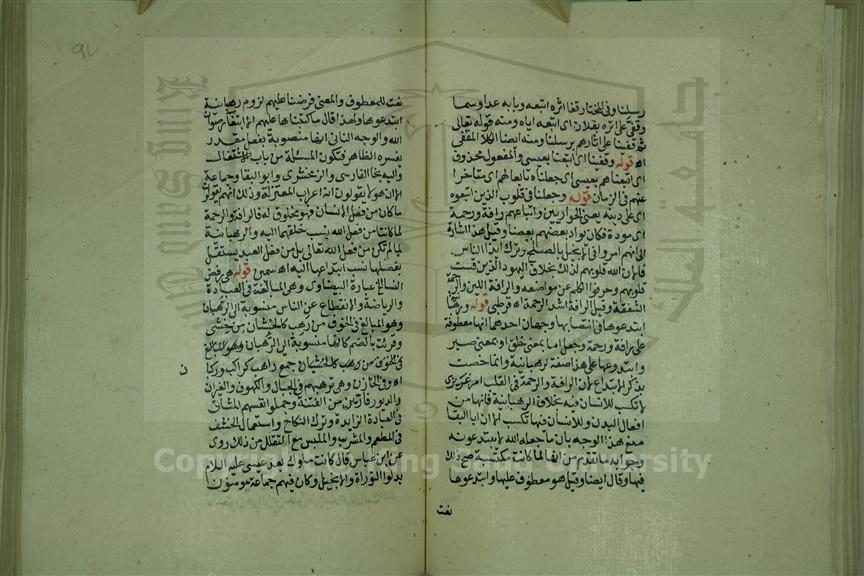 رسلنا وفى المختار قفا اثره اتبعه وبابه عدا وسما
وقفى على اثره بفلان اى اتبعه اياه ومنه قوله تعالى
ثم قفينا على اثارهم برسلنا ومنه ايضا الكلام المقفى
اه قوله وقفينا اى اتبعنا بعيسى والمفعول محذوف
اى اتبعناهم بعيسى اى جعلناه تابعا لهم اى متاخرا
عنهم فى الزمان قوله وجعلنا فى قلوب الذين اتبعوه
اى على دينه يعنى الحواريين واتباعهم رافة ورحمة
اى مودة فكان يواد بعضهم بعضا وقيل هذا اشارة
الى انهم امروا فى الانجيل بالصلح وترك ايذا الناس
فالان الله قلوبهم لذلك بخلاف اليهود الذين قست
قلوبهم وحرفوا الكلم عن مواضعه والرافة اللين والرحمة
الشفقة وقيل الرافة اشد الرحمة اه قرطبى قوله ورهبانية
ابتدعوها فى انتصابها وجهان احدهما انها معطوفة
على رافة ورحمة وجعل اما بمعنى خلق او بمعنى صير
وابتدعوها على هذا صفة لرهبانية وانما خصت
بذكر الابتداع لان الرافة والرحمة فى القلب امر غريزى
لا تكسب للانسان فيه بخلاف الرهبانية فانها من
افعال البدن وللانسان فيها تكسب الا ان ابا البقا
منع هذا الوجه بان ما جعله الله لا يبتدعونه
وجوابه ما تقدم من انها لما كانت مكتسبة صح ذلك
فيها وقال ايضا وقيل هو معطوف عليها وابتدعوها
نعت
نعت للمعطوف والمعنى فرضنا عليهم لزوم رهبانية
ابتدعوها ولهذا قال ما كتبناها عليهم الا ابتغا رضوان
الله والوجه الثانى انها منصوبة بفعل مقدر
يفسره الظاهر فتكون المسئلة من باب الاشتغال
واليه نحا الفارسى والزمخشرى وابو البقا وجماعة
الا ان هولا يقولون انه اعراب المعتزلة وذلك انهم يقولون
ما كان من فعل الانسان فهو مخلوق له فالرافة والرحمة
لما كانتا من فعل الله نسب خلقهما اليه والرهبانية
لما لم تكن من فعل الله تعالى بل من فعل العبد يستقل
بفعلها نسب ابتداعها اليه اه سمين قوله هى رفض
النسا الخ عبارة البيضاوى وهى المبالغة فى العبادة
والرياضة والانقطاع عن الناس منسوبة الى الرهبان
وهو المبالغ فى الخوف من رهب كالخشيان من خشى
وقريت بالضم كانها منسوبة الى الرهبان وهو المبالغ
فى الخوف من رهب كالخشيان جمع راهب كراكب وركبان
اه وفى الخازن وهى ترهبهم فى الجبال والكهوف والغيران
والديور فارين من الفتنة وحملوا انفسهم المشاق
فى العبادة الزايدة وترك النكاح واستعمال الخشن
فى المطعم والمشرب والملبس مع التقلل من ذلك روى
عن ابن عباس قال كانت ملوك بعد عيسى عليه السلام
بدلوا التوراة والانجيل وكان فيهم جماعة مومنون
Copyright © King Saud University